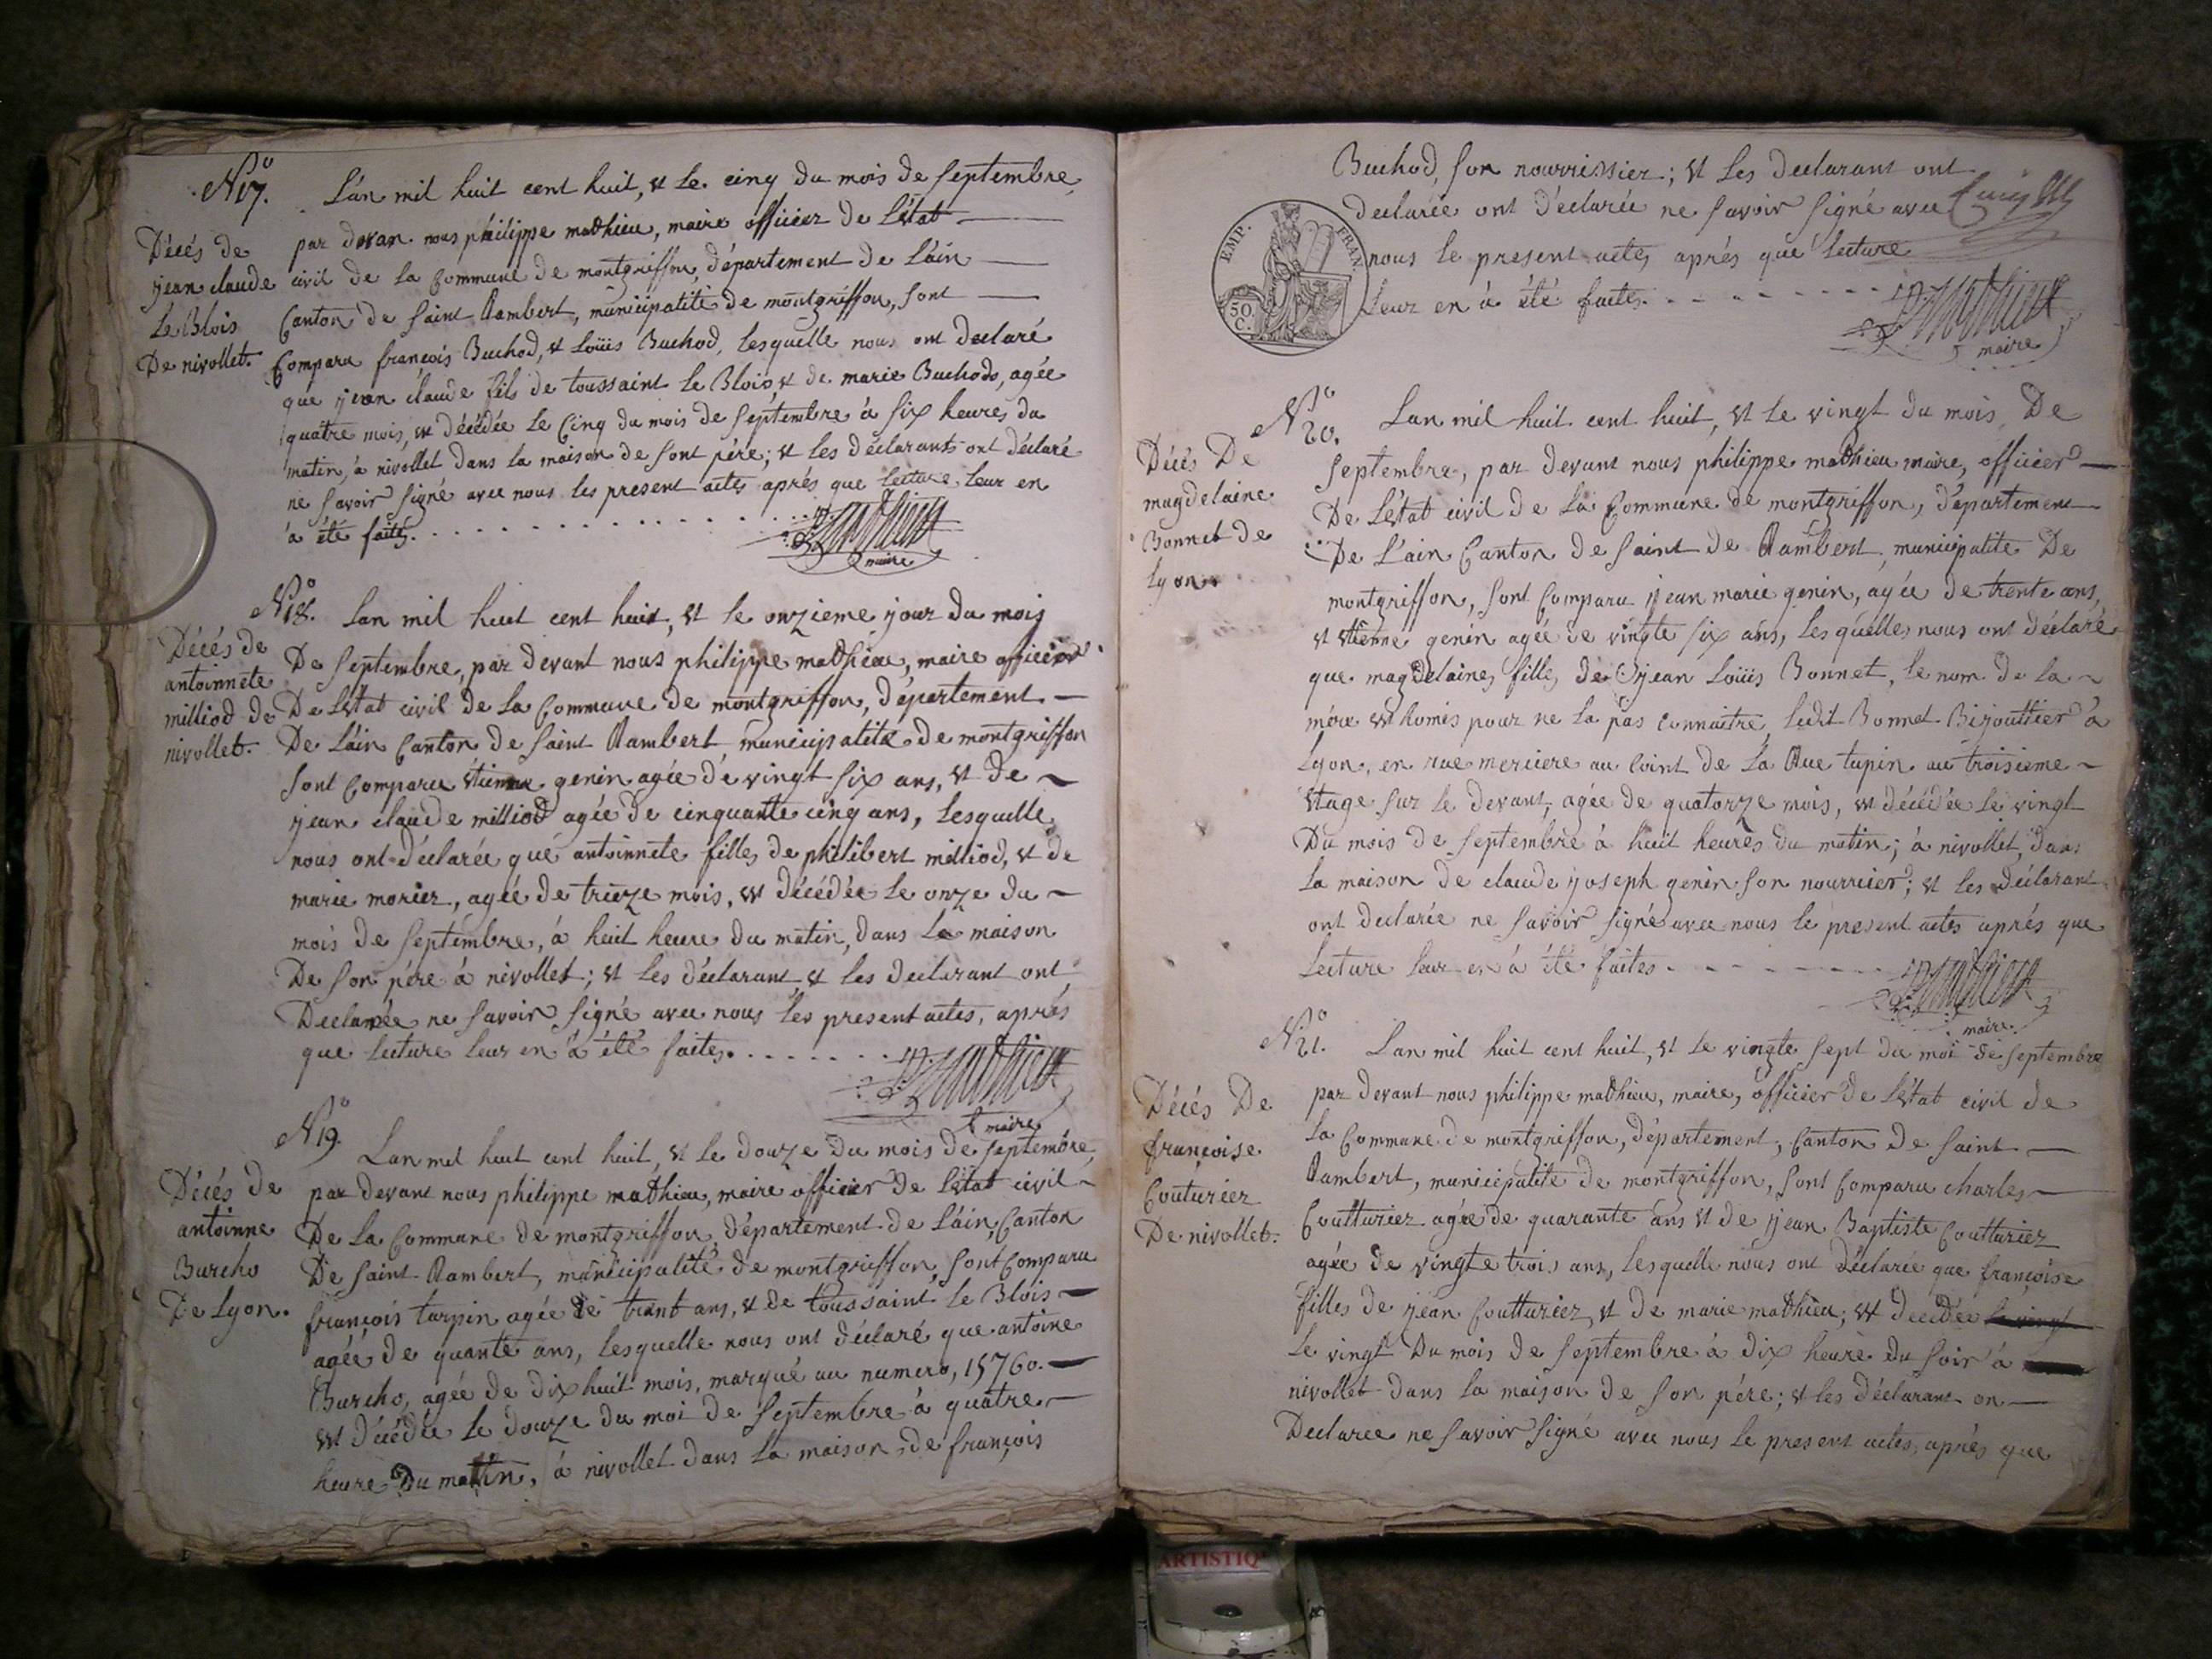 N.º 17.
Décés de
jean claude
Le Blois
De nivollet.
L'an mil huit cent huit, et le cinq du mois de septembre
par devan nous philippe mathieu, maire officier de L'état
civil de la Commune de montgriffon, département de L'ain
Canton de saint Rambert, municipalité de montgriffon, sont
Comparu françois Buchod, et Loüis Buchod, Lesquelle nous ont declaré
que jean claude fils de toussaint Le Blois, et de marie Buchods, agée
quatre mois, est décédée Le Cinq du mois de septembre à six heures du
matin, à nivollet Dans la maison de sont père; et les déclarants ont déclaré
ne savoir signé avec nous les present actes aprés que lecture Leur en
à été faites.
Mathieu
maire
N.º 18.
Décés de
antoinnete
milliod de
nivollet.
Lan mil huit cent huit, et le onzieme jour du mois
De septembre, par devant nous philippe mathieu, maire officier
De L'état civil de La Commune de montgriffon, département
De L'ain Canton de saint Rambert municipalité de montgriffon
sont Comparu étienne genin agée de vingt six ans, et de
jean claude milliod agée de cinquante cinq ans, Lesquelle
nous ont déclarée qué antoinnete filles de philibert milliod, et de
marie morier, agée de trieze mois, est décédée le onze du
mois de septembre, à huit heure du matin, dans La maison
De son père à nivollet; et Les déclarant, et les declarant ont
Declarée ne savoir signé avec nous les present actes, aprés
que lecture leur en à été faites.
Mathieu
maire
N.º 19.
Décés de
antoinne
Burcho
De Lyon.
Lan mil huit cent huit, et le douze du mois de septembre,
par devant nous philippe mathieu, maire officier de L'état civil
De La Commune de montgriffon, département de L'ain, Canton
De saint Rambert, municipalité de montgriffon, sont Comparu
françois turpin agée de trent ans, et de toussaint Le Blois
agée de quante ans, lesquelle nous ont déclaré que antoine
Burcho, agée de dix huit mois, marqué au numero, 15760.
est décédée le douze du moi de septembre à quatre
heure Du matin, à nivollet dans la maison de françois
Buchod, son nourrissier; et les declarant ont
declarée ont déclarée ne savoir signé avec
nous le present actes, aprés que lecture
Leur en à été faites.
EMP. FRAN.
50
C.
Mathieu
maire
N.º 20.
Décés De
magdelaine
Bonnet de
lyon.
Lan mil huit cent huit, et le vingt du mois De
septembre, par devant nous philippe mathieu maire, officier
De L'état civil de La Commune de montgriffon, département
De L'ain Canton de saint de Rambert, municipalite De
montgriffon, sont Comparu jean marie genin, agée de trente ans,
et étienne genin agée de vingte six ans, les quelles nous ont déclaré
que magdelaines filles de jean Loüis Bonnet, le nom de la
mère est homis pour ne la pas connaitre, ledit Bonnet Bijouttier à
Lyon, en rue merciere au Coint de La Rue tupin au troisieme
étage sur le devant, agée de quatorze mois, est décédée le vingt
Du mois de septembre à huit heures du matin; à nivollet, dans
la maison de claude joseph genin son nourricier; et les déclarant
ont declarée ne savoir signé avec nous le present actes aprés que
Lecture leur en à été faites
Mathieu
maire
N.º 21.
Décés De
françoise
Couturier
De nivollet.
Lan mil huit cent huit, et le vingte sept du moi de septembre
par devant nous philippe mathieu, maire, officier de L'état civil de
la Commune de montgriffon, département, Canton de saint
Rambert, municipalité de montgriffon, sont Comparu charles
Coutturier agée de quarante ans et de jean Baptiste Coutturier
agée de vingte trois ans, lesquelle nous ont déclarée que françoise
filles de jean Coutturier, et de marie mathieu; est decedée le vingt
Le vingt Du mois de septembre à dix heure du soir à
nivollet dans la maison de son père; et les déclarant on
Declaree ne savoir signé avec nous le present actes, aprés que
ARTISTIQ